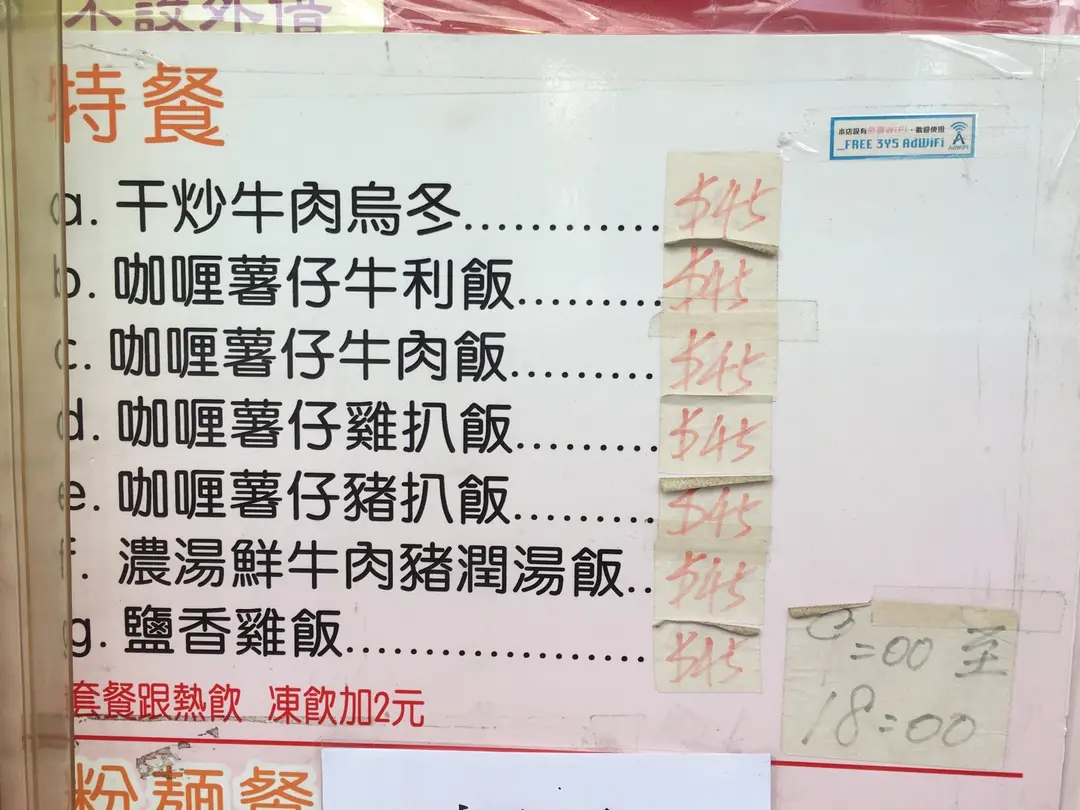 不設外借
特餐
本店設有免費WiFi,歡迎使用
_FREE 3YS AdWiFi
AdWiFi
a. 干炒牛肉烏冬............. $45
b. 咖喱薯仔牛利飯.......... $45
c. 咖喱薯仔牛肉飯.......... $45
d. 咖喱薯仔雞扒飯.......... $45
e. 咖喱薯仔豬扒飯.......... $45
f. 濃湯鮮牛肉豬潤湯飯.. $45
g. 鹽香雞飯..................... $45
:00 至
18:00
套餐跟熱飲 凍飲加2元
粉麵餐